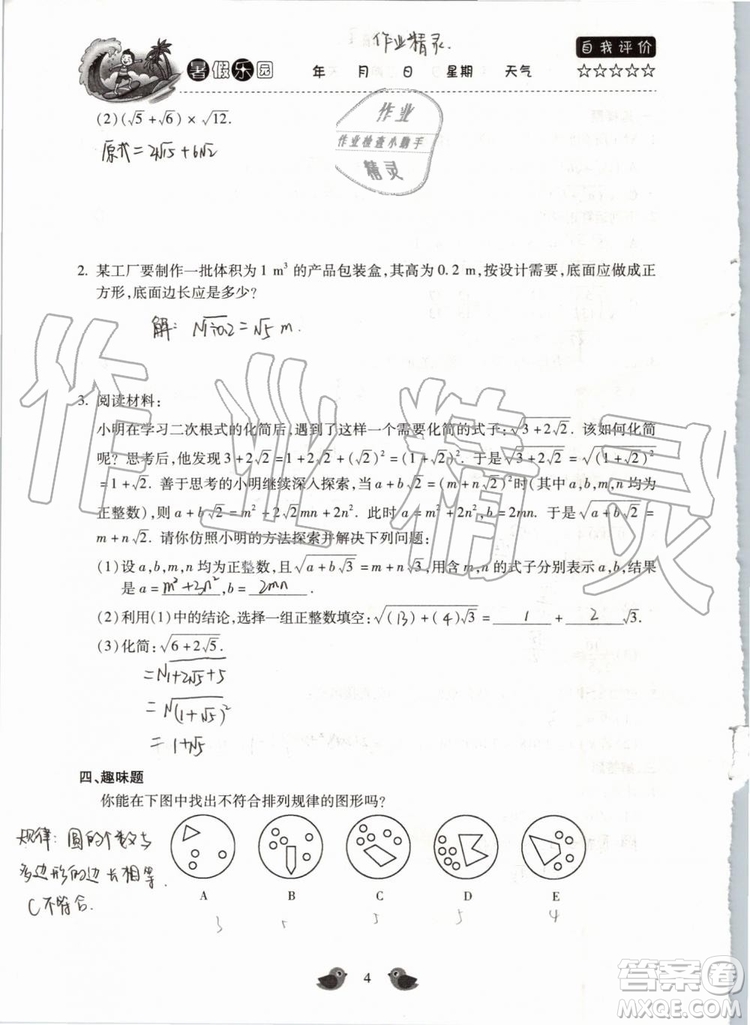 作业精灵.
自我评价
暑假乐园 年 月 日 星期 天气 ☆☆☆☆☆
(2)(√5+√6)×√12.
原式=2√15+6√2
作业
作业检查小助手
精灵
2. 某工厂要制作一批体积为1 m³的产品包装盒,其高为0.2 m,按设计需要,底面应做成正
方形,底面边长应是多少?
解: √1÷0.2=√5 m.
3. 阅读材料:
小明在学习二次根式的化简后,遇到了这样一个需要化简的式子:√(3+2√2). 该如何化简
呢? 思考后,他发现3+2√2=1+2√2+(√2)²=(1+√2)². 于是√(3+2√2)=√((1+√2)²)
=1+√2. 善于思考的小明继续深入探索,当a+b√2=(m+n√2)²时(其中a,b,m,n均为
正整数),则a+b√2=m²+2√2mn+2n². 此时a=m²+2n²,b=2mn. 于是√(a+b√2)=
m+n√2. 请你仿照小明的方法探索并解决下列问题:
(1)设a,b,m,n均为正整数,且√(a+b√3)=m+n√3,用含m,n的式子分别表示a,b,结果
是a=m²+3n²,b=2mn
(2)利用(1)中的结论,选择一组正整数填空:√((13)+(4)√3)=1+2√3.
(3)化简:√(6+2√5).
=√(1+2√5+5)
=√((1+√5)²)
=1+√5
四、趣味题
你能在下图中找出不符合排列规律的图形吗?
规律:圆的个数与
多边形的边长相等.
C不符合.
A B C D E
3 5 5 5 4
4
作业精灵
答案圈
MXQE.COM